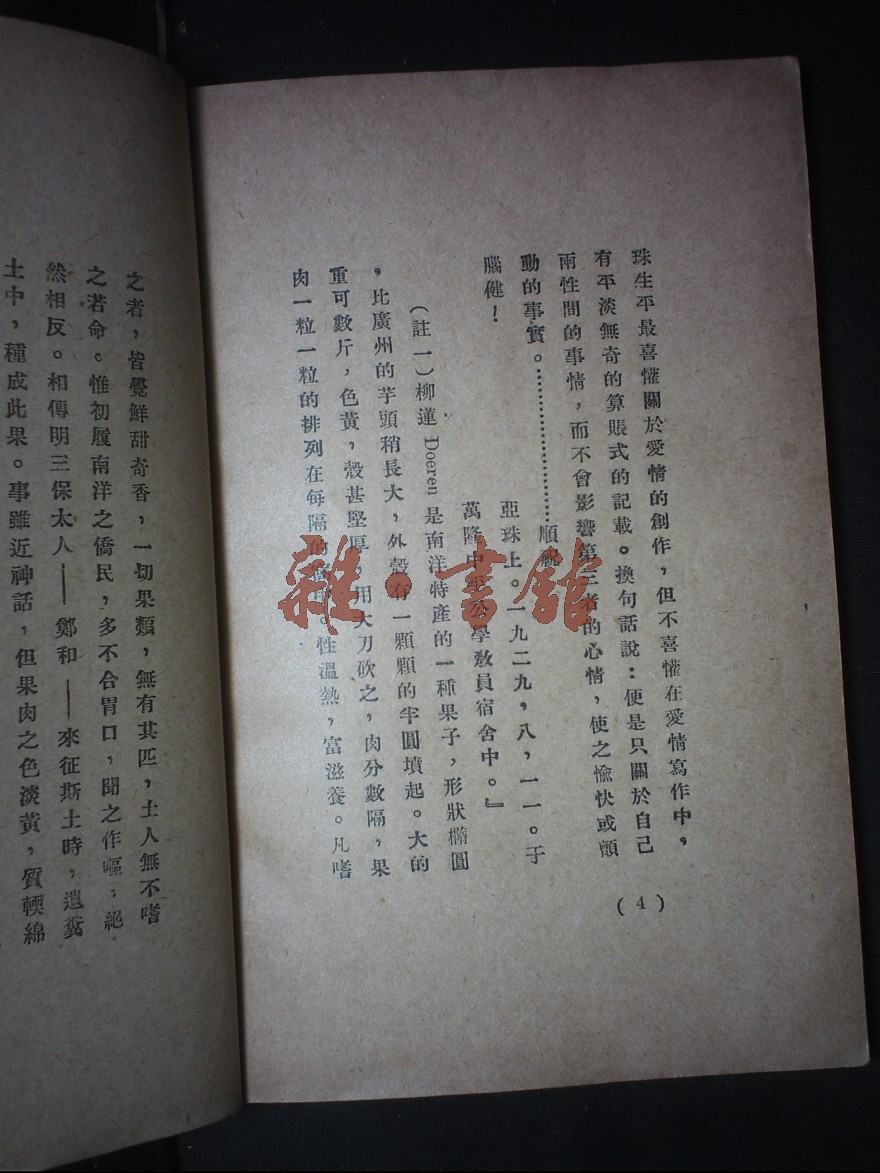 珠生平最喜懽關於愛情的創作，但不喜懽在愛情寫作中，
有平淡無奇的算賬式的記載。換句話說：便是只關於自己
兩性間的事情，而不會影響第三者的心情，使之愉快或顫
動的事實。…………………順祝
腦健！
亞珠上。一九二九，八，一一。于
萬隆中華公學教員宿舍中。』
（註一）柳蓮 Doeren 是南洋特產的一種果子，形狀橢圓
，比廣州的芋頭稍長大，外殼有一顆顆的半圓墳起。大的
重可數斤，色黃，殼甚堅厚，用大刀砍之，肉分數隔，果
肉一粒一粒的排列在每隔的中。性溫熱，富滋養。凡嗜
(4)
之者，皆覺鮮甜奇香，一切果類，無有其匹，土人無不嗜
之若命。惟初履南洋之僑民，多不合胃口，聞之作嘔，絕
然相反。相傳明三保太人——鄭和——來征斯土時，遺糞
土中，種成此果。事雖近神話，但果肉之色淡黃，質輭綿
雜·書館